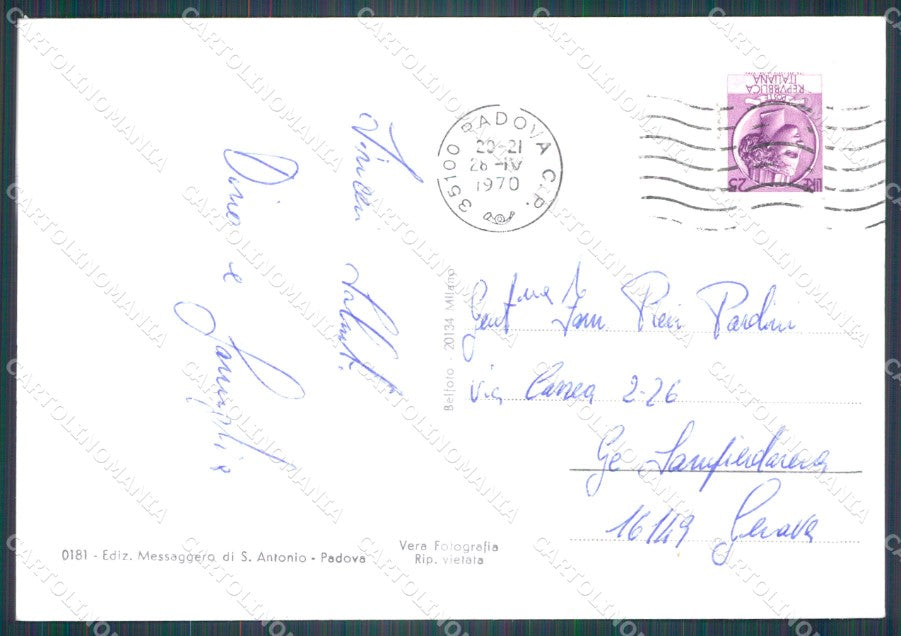 35100 PADOVA C.P.
20-21
28-IV
1970
POSTE
REPVBBLICA
ITALIANA
LIRE 25
Saluti
Dino e Famiglia
Belfoto - 20134 Milano
Gent.ma Fam Pieri Pardini
via Cassea 2-26
Ge Sampierdarena
16149 Genova
0181 - Ediz. Messaggero di S. Antonio - Padova
Vera Fotografia
Rip. vietata
CARTOLINOMANIA